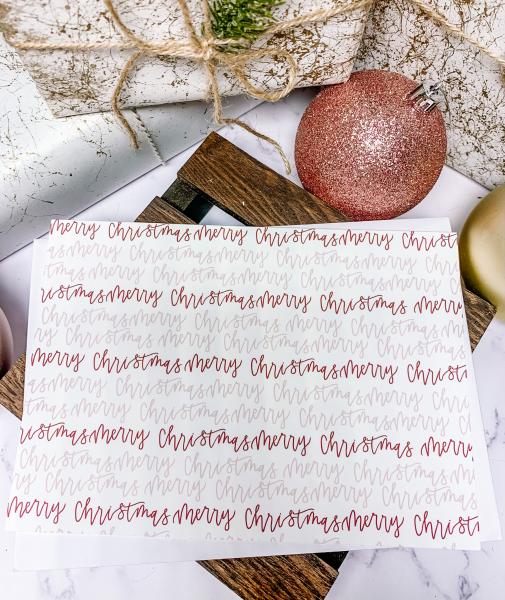 merry Christmas merry Christmas merry Christ
as merry Christmas merry Christmas merry Chri
tmas merry Christmas merry Christmas merry C
ristmas merry Christmas merry Christmas merry
y Christmas merry Christmas merry Christmas
ry Christmas merry Christmas merry Christmas
merry Christmas merry Christmas merry Christ
as merry Christmas merry Christmas merry Chri
tmas merry Christmas merry Christmas merry C
ristmas merry Christmas merry Christmas merry
Christmas merry Christmas merry Christmas
ry Christmas merry Christmas merry Christmas
merry Christmas merry Christmas merry Christ